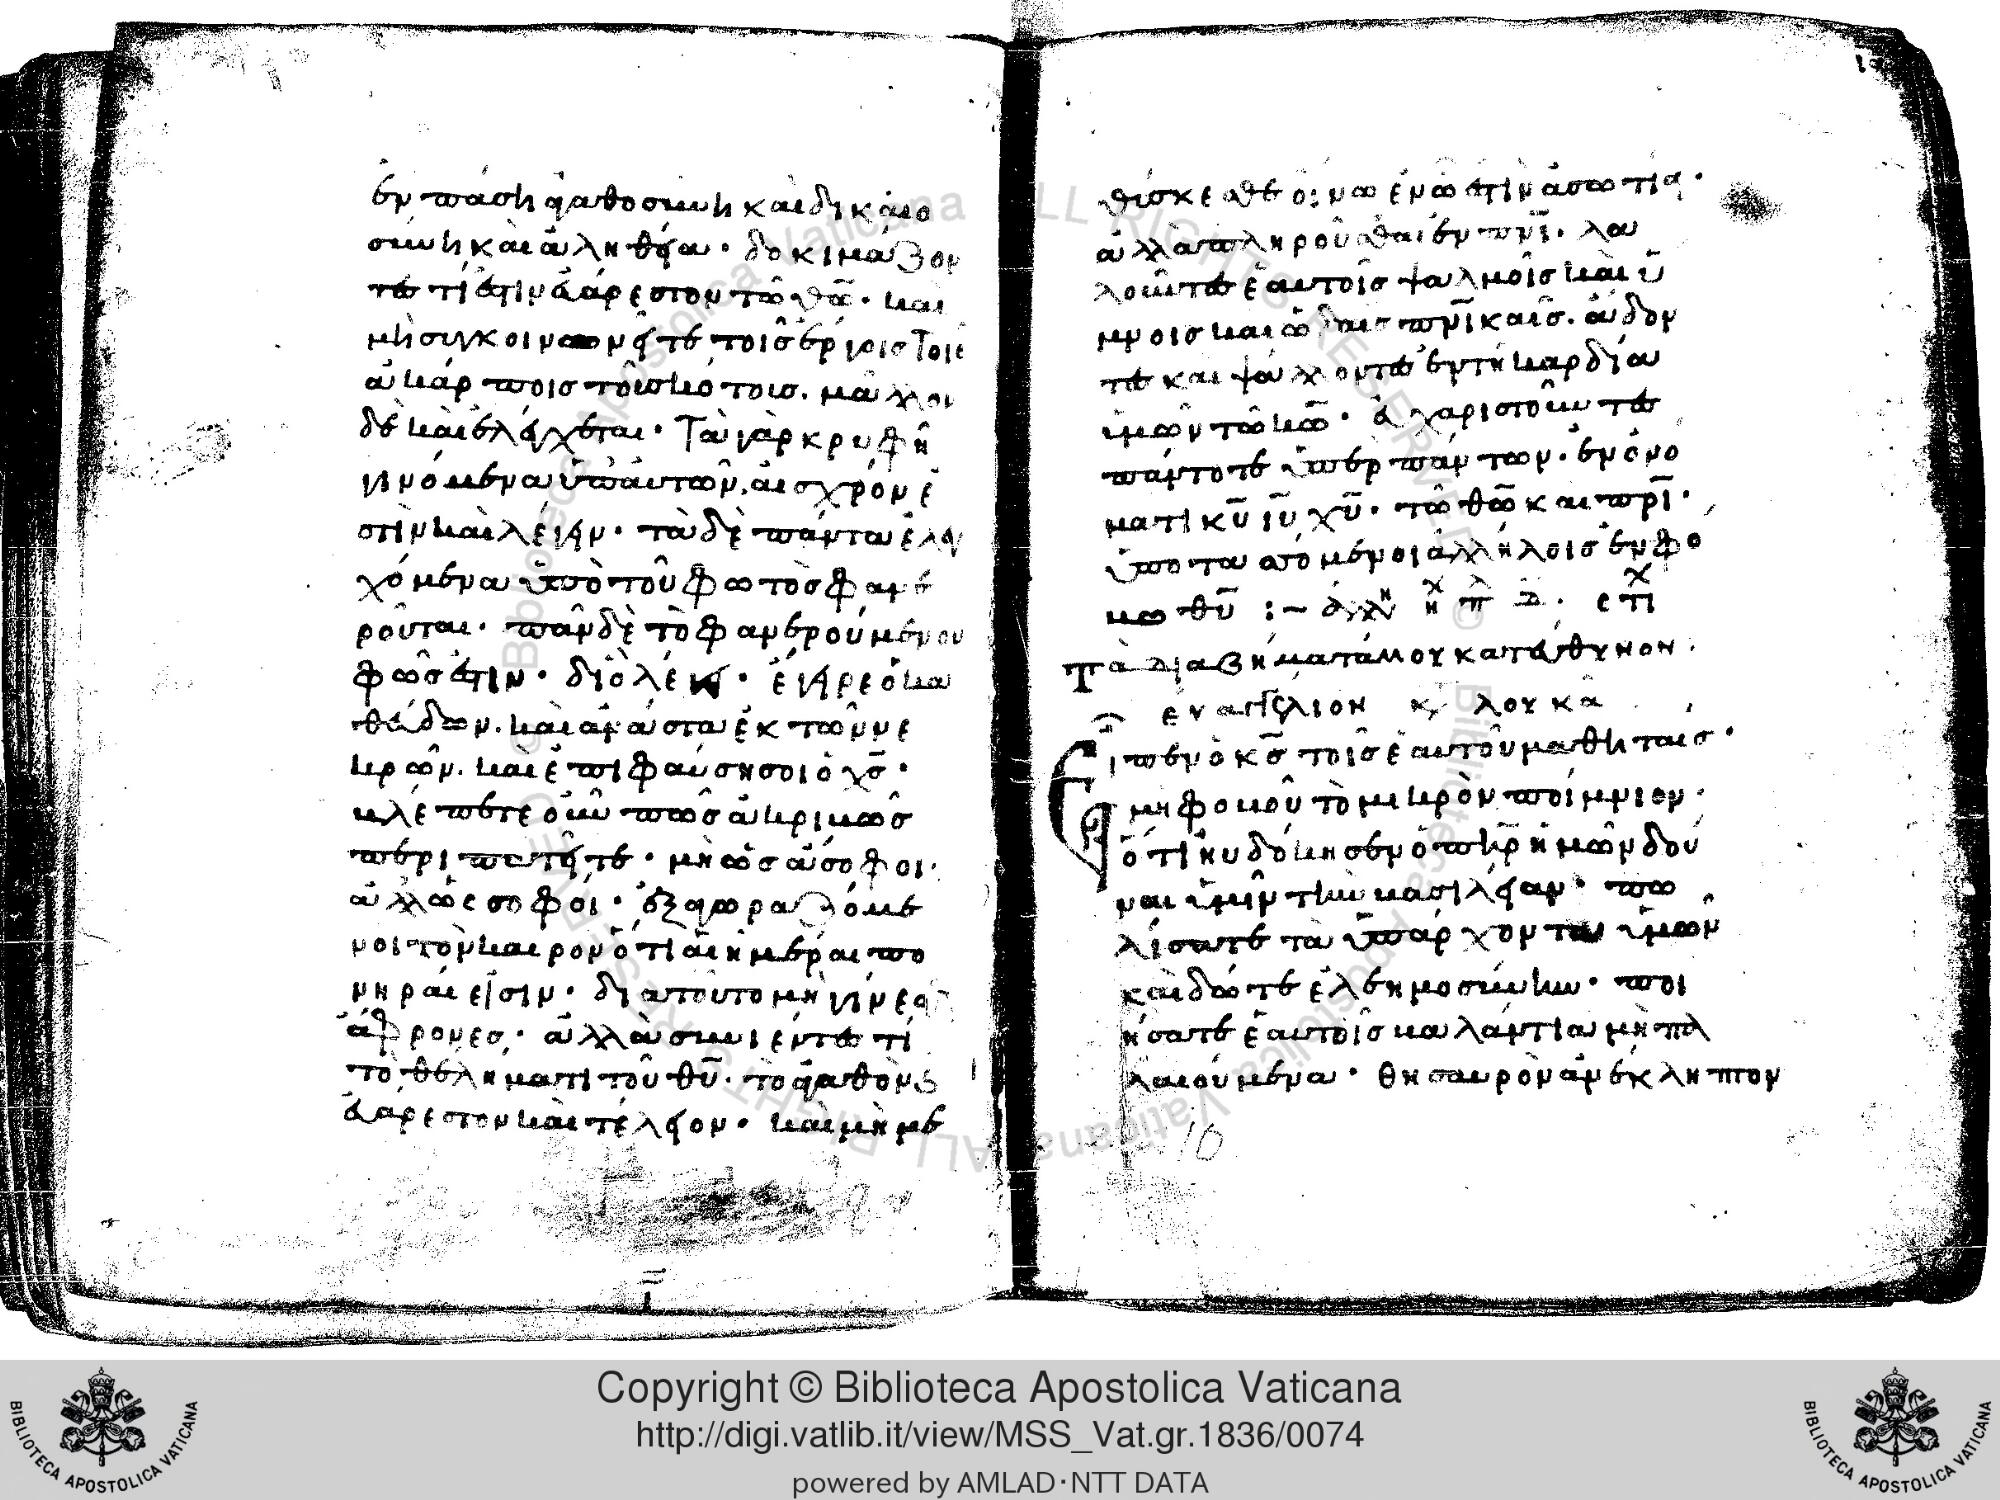 ἐν πάσῃ ἀγαθοσύνη καὶ δικαιο
σύνη καὶ ἀληθεία· δοκιμάζον
τες τί ἐστιν εὐάρεστον τῶ θω̅· καὶ
μὴ συγκοινωνεῖτε τοῖς ἔργοις τοῖς
ἀκάρποις τοῦ σκότους. μᾶλλον
δὲ καὶ ἐλέγχεται· Τὰ γὰρ κρυφῆ
γινόμενα ὑπ' αυτῶν, αἰσχρόν ἐ
στὶν καὶ λέγειν· τὰ δὲ πάντα ἐλεγ
χόμενα ὑπὸ τοῦ φωτὸς φανε
ροῦται· πᾶν δὲ τὸ φανερούμενον
φῶς ἐστιν· διὸ λέγει· ἔγειρε ὁ κα
θεύδων. καὶ ἀνάστα ἐκ τῶν νε
κρῶν. καὶ ἐπιφαύση σοι ὁ χς̅·
βλέπετε οὖν πῶς ἀκριβῶς
περιπατεῖτε· μὴ ὡς ἄσοφοι·
ἀλλ' ὡς σοφοί· ἐξαγωραζόμε
νοι τὸν καιρον ὅτι αἱ ἡμέραι πο
νηραί εἰσιν· διατοῦτο μὴ γίνεσθε
ἄφρονες· ἀλλὰ συνιέντες τί
τὸ θέλημα τι τοῦ θυ̅· τὸ ἀγαθὸν
εὐάρεστον καὶ τέλειον· καὶ μὴ με
θύσκεσθε οἴνω ἐν ῶ ἐστὶν ἀσωτία·
ἀλλὰ πληροῦσθαι ἐν πνι̅· λα
λοῦντες ἑαυτοῖς ψαλμοῖς καὶ ὕ
μνοις καὶ ὠδαις πνι̅καῖς. ἄδον
τες και ψάλλοντες ἐν τη καρδία
ὑμῶν τῶ κω̅· εὐχαριστοῦντες
πάντοτε ὑπὲρ πάντων· ἐν ὀνό
ματι κυ̅ ιυ̅ χυ̅· τῶ θω̅ και πρι̅·
ὑποτασσόμενοι ἀλλήλοις ἐν φό
βω θυ̅ :~
Τὰ διαβήματά μου κατεύθυνον·
εὐαγγέλιον κ λουκᾶ
Εἶπεν ὁ κς̅ τοῖς ἑαυτοῦ μαθηταῖς·
μὴ φοβοῦ τὸ μικρὸν ποίμνιον·
ὅτι ηυδόκησεν ὁ πηρ̅ ἡμῶν δού
ναι ὑμῖν τὴν βασιλείαν· πω
λίσατε τὰ ὑπάρχοντα ὑμῶν
καὶ δότε ἐλεημοσύνην· ποι
ήσατε ἑαυτοῖς βαλάντια μὴ πα
λαιούμενα· θησαυρὸν ἀνέκληπτον
10
Copyright © Biblioteca Apostolica Vaticana
http://digi.vatlib.it/view/MSS_Vat.gr.1836/0074
powered by AMLAD·NTT DATA